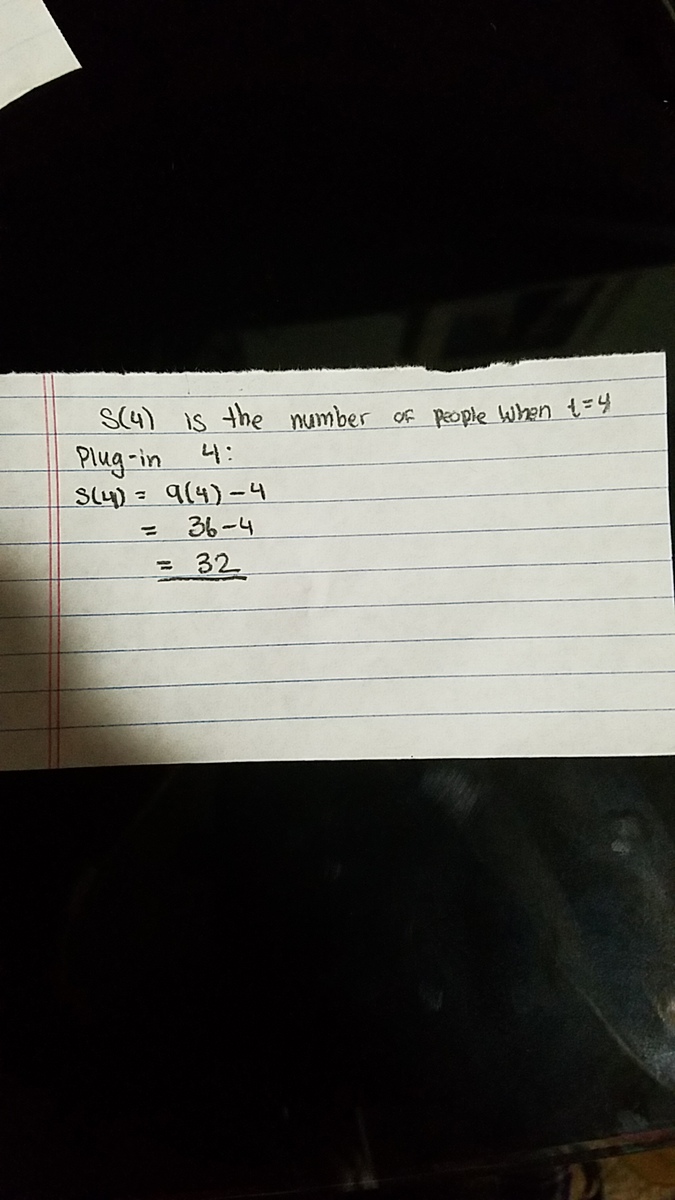 S(4) is the number of people when t=4
Plug-in 4:
S(4) = 9(4) - 4
= 36 - 4
= 32